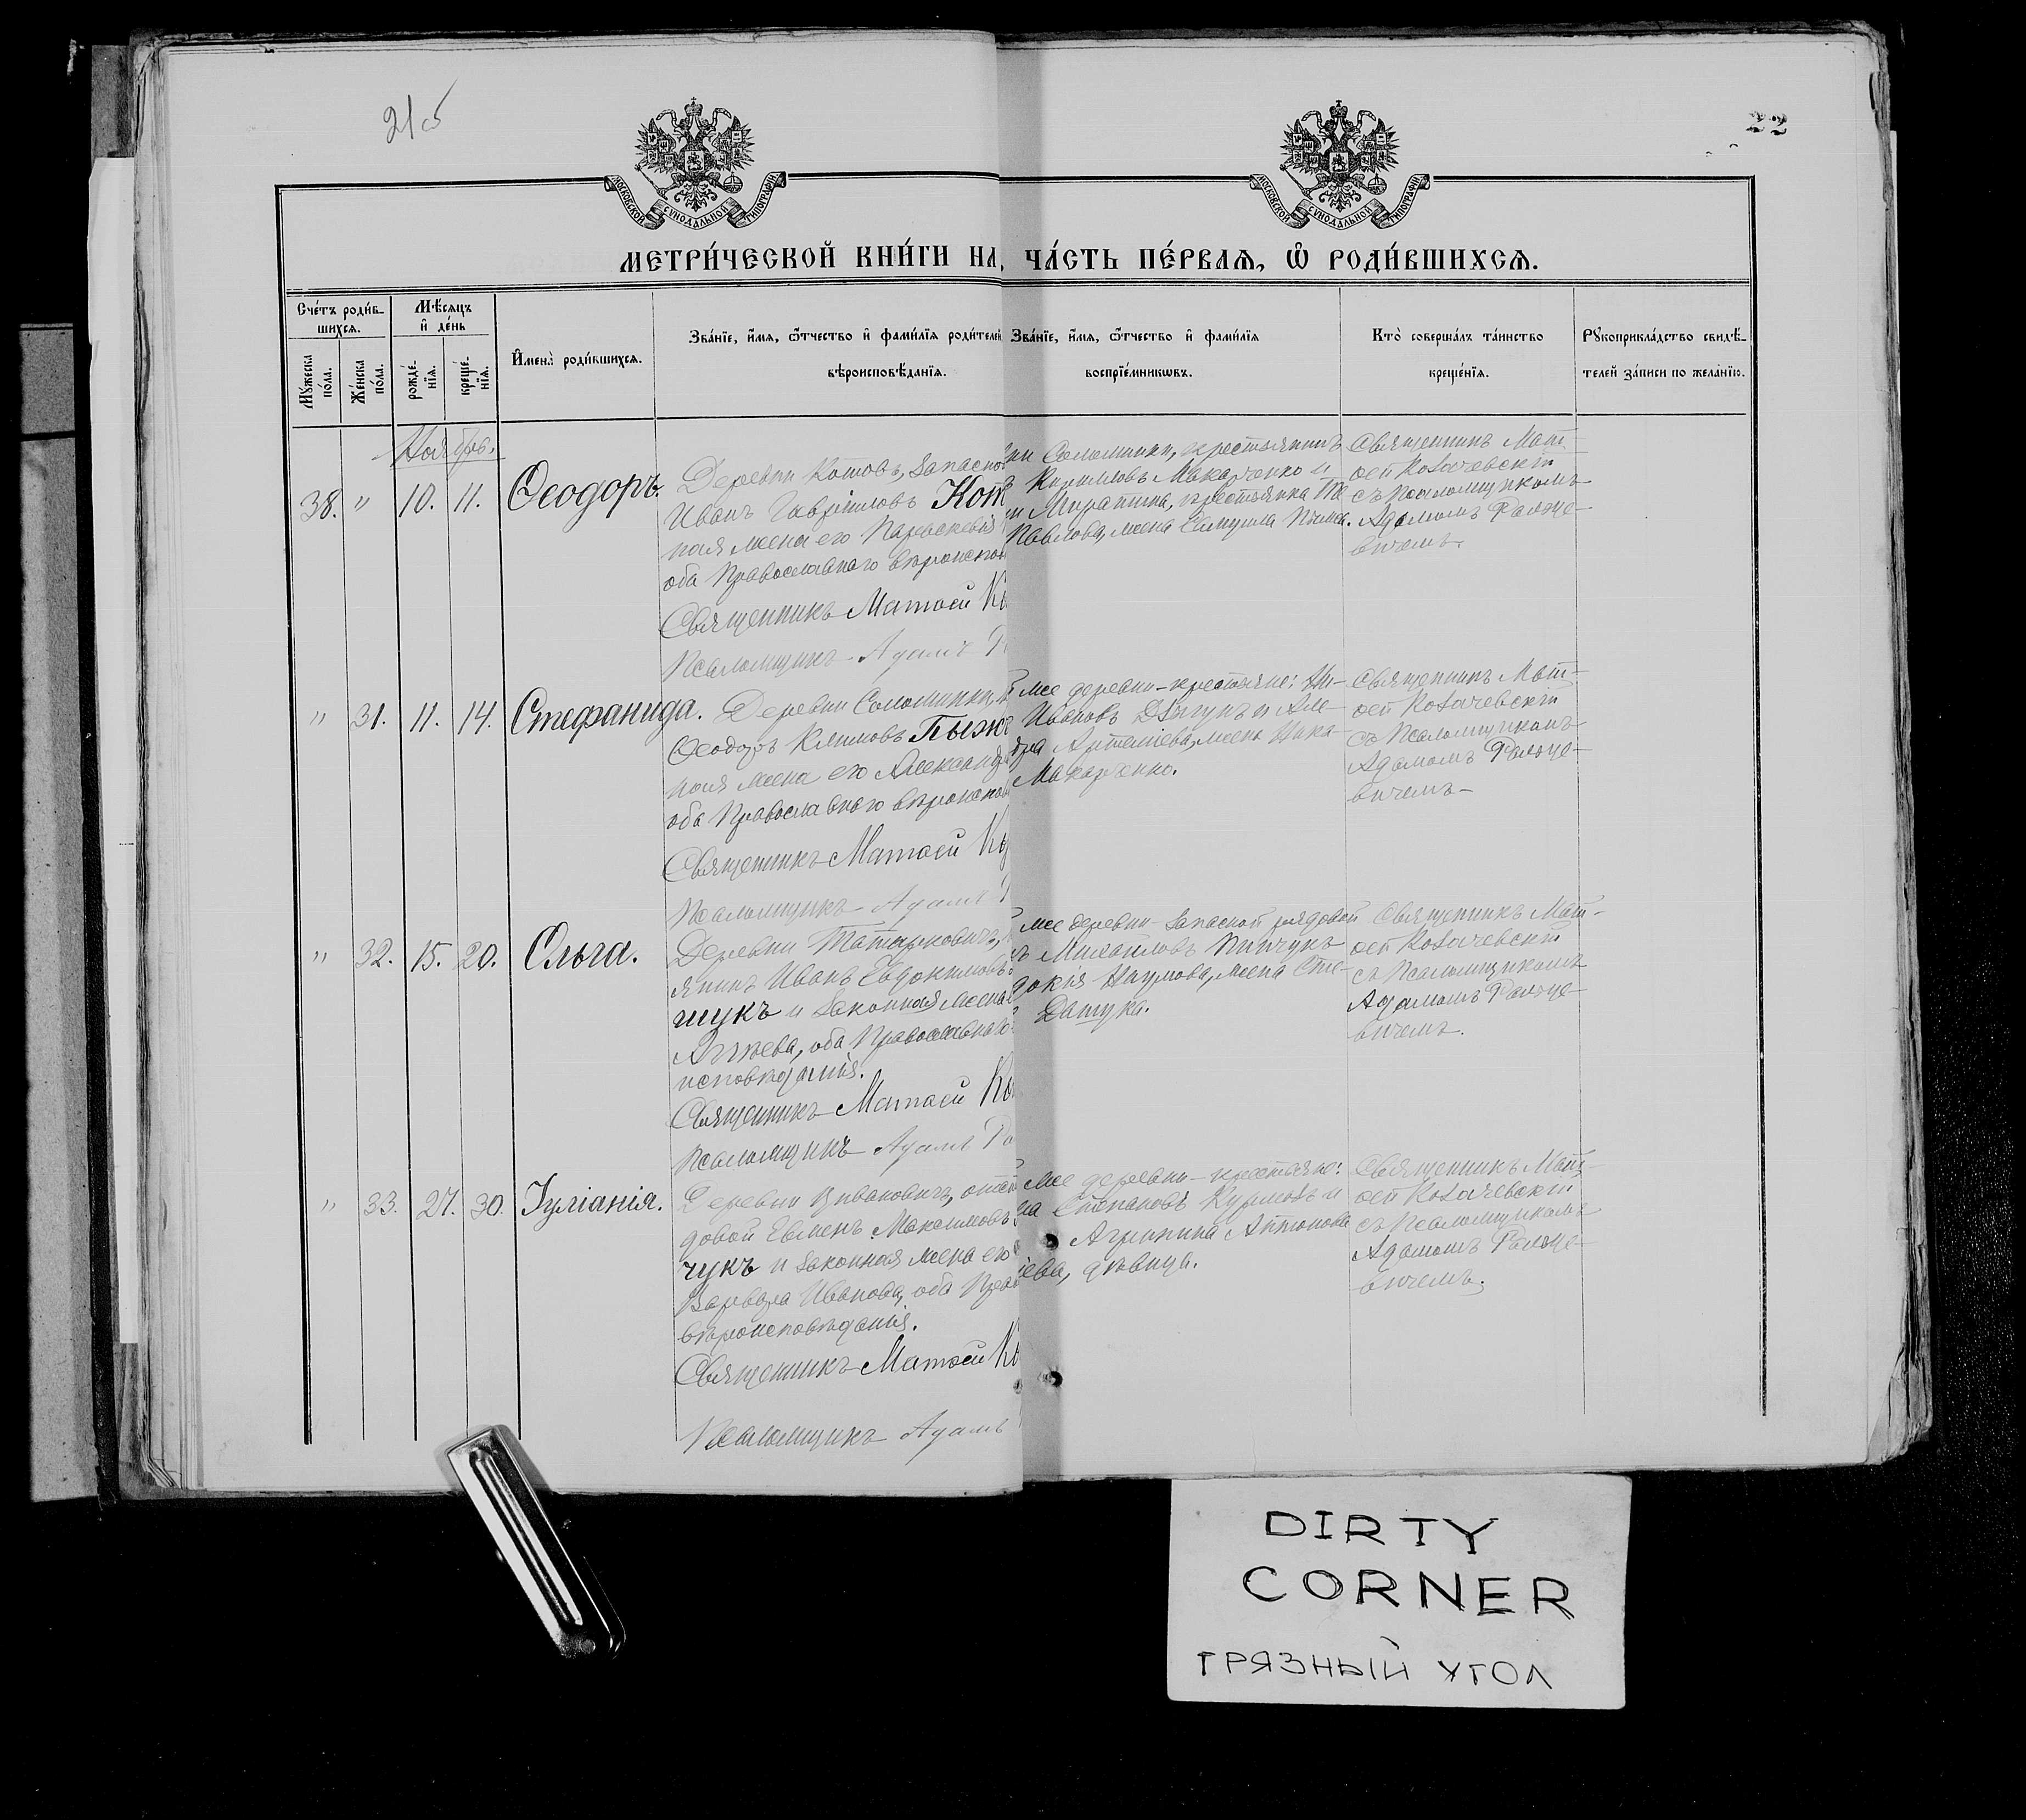 215
22
МОСКОВСКОЙ СУНОДАЛЬНОЙ ТИПОГРАФІИ
МОСКОВСКОЙ СУНОДАЛЬНОЙ ТИПОГРАФІИ
МЕТРИ́ЧЕСКОЙ КНИ́ГИ НА
ЧА́СТЬ ПЕ́РВАѦ, Ѽ РОДИ́ВШИХСѦ.
Сче́тъ роди́в-
шихсѧ.
Мѣ́сѧцъ
и҆ де́нь
Мꙋ́жеска
по́ла.
Же́нска
по́ла.
рожде́-
нїѧ.
креще́-
нїѧ.
И҆мена̀ роди́вшихсѧ.
Зва́нїе, и҆́мѧ, ѻ҆́тчество и҆ фами́лїѧ родителей
вѣроисповѣ́данїѧ.
Зва́нїе, и҆́мѧ, ѻ҆́тчество и҆ фами́лїѧ
воспрїе́мникѡвъ.
Кто̀ соверша́лъ та́инство
креще́нїѧ.
Рꙋкоприкла́дство свидѣ́-
телей за́писи по жела́нїю.
Ноябрь.
38. " 10. 11. Ѳеодоръ.
Деревни Котовъ, запасно
Иванъ Гавріиловъ Кот
ная жена его Параскевія
оба Православнаго вѣроиспов
Священникъ Матѳей Ко
Псаломщикъ Адамъ Р
ни Соломинки, крестьянинъ
Кирилловъ Макаренко и
крестьянка
Павлова, жена
Священникъ Мат-
ѳей Козачевскій
съ Псаломщикомъ
Адамомъ
вичемъ.
" 31. 11. 14. Стефанида.
Деревни Соломинки,
Ѳеодоръ Климовъ Пыж
ная жена его Александ
оба Православнаго вѣроиспов
Священникъ Матѳей Ко
Псаломщикъ Адамъ
же деревни крестьяне: Ни-
Ивановъ и Але-
дра Артеміева, жена Ника-
Макаренко.
Священникъ Мат-
ѳей Козачевскій
съ Псаломщикомъ
Адамомъ
вичемъ
" 32. 15. 20. Ольга.
Деревни Татарковичъ,
янинъ Иванъ Евдокимовъ
шукъ и законная жена
оба Православнаго
исповѣданія.
Священникъ Матѳей Ко
Псаломщикъ Адамъ Ра
же деревни запасной рядовой
Михаиловъ Пинчукъ
докія Наумова, жена Сте-
Дашука.
Священникъ Мат-
ѳей Козачевскій
съ Псаломщикомъ
Адамомъ
вичемъ.
" 33. 27. 30. Іуліанія.
Деревни
довой Евменъ Максимовъ
чукъ и законная жена его
Варвара Иванова, оба Прав
вѣроисповѣданія.
Священникъ Матѳей Ко
Псаломщикъ Адамъ
же деревни крестьяне:
Степановъ и
Агрипина Антонова
ева, дѣвица.
Священникъ Мат-
ѳей Козачевскій
съ Псаломщикомъ
Адамомъ
вичемъ.
DIRTY
CORNER
ГРЯЗНЫЙ УГОЛ